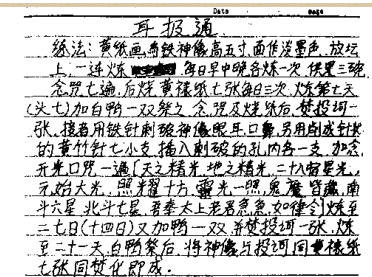 Date
耳报通
练法:黄纸画番铁神像高五寸,面作淡墨色,放坛
上,一连炼 每日早中晚各炼一次 供果三碗
念咒七遍,后烧黄裱纸七张每日三次,炼第七天
(头七)加白鸭一双祭之,念咒及烧纸后,焚投词一
张,接着用铁针刺破神像眼耳口鼻,另用削成针状
的黄竹针七小支,插入刺破的孔内各一支,加念
开光口咒一遍(天之精光,地之精光,二十八宿星光,
元始大光,照耀十方,灵光一照,鬼魔皆藏,南
斗六星,北斗七星,吾奉太上老君急急如律令)炼至
二七日(十四日)又加鸭一双,并焚投词一张,炼
至二十一天,白鸭祭后,将神像与投词同黄裱纸
七张同焚化即成.